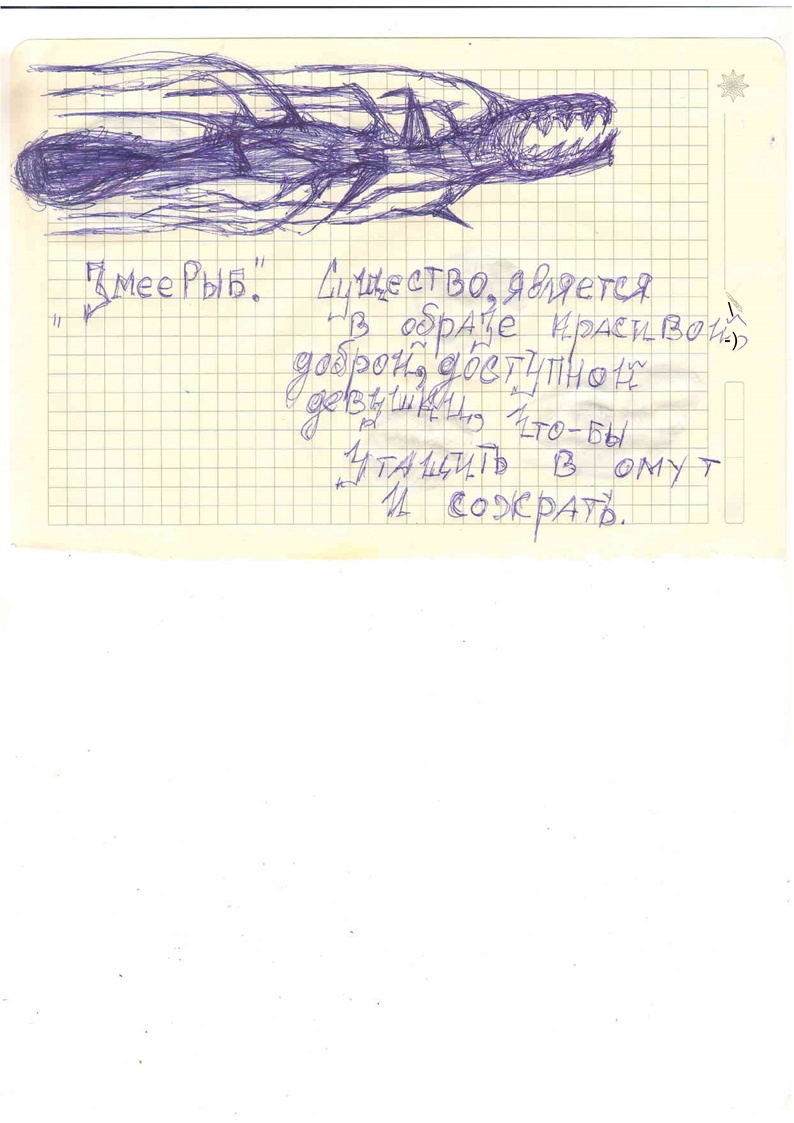 "ЗмееРыб." Существо, является
в образе красивой
доброй, доступной
девушки, что-бы
утащить в омут
и сожрать.